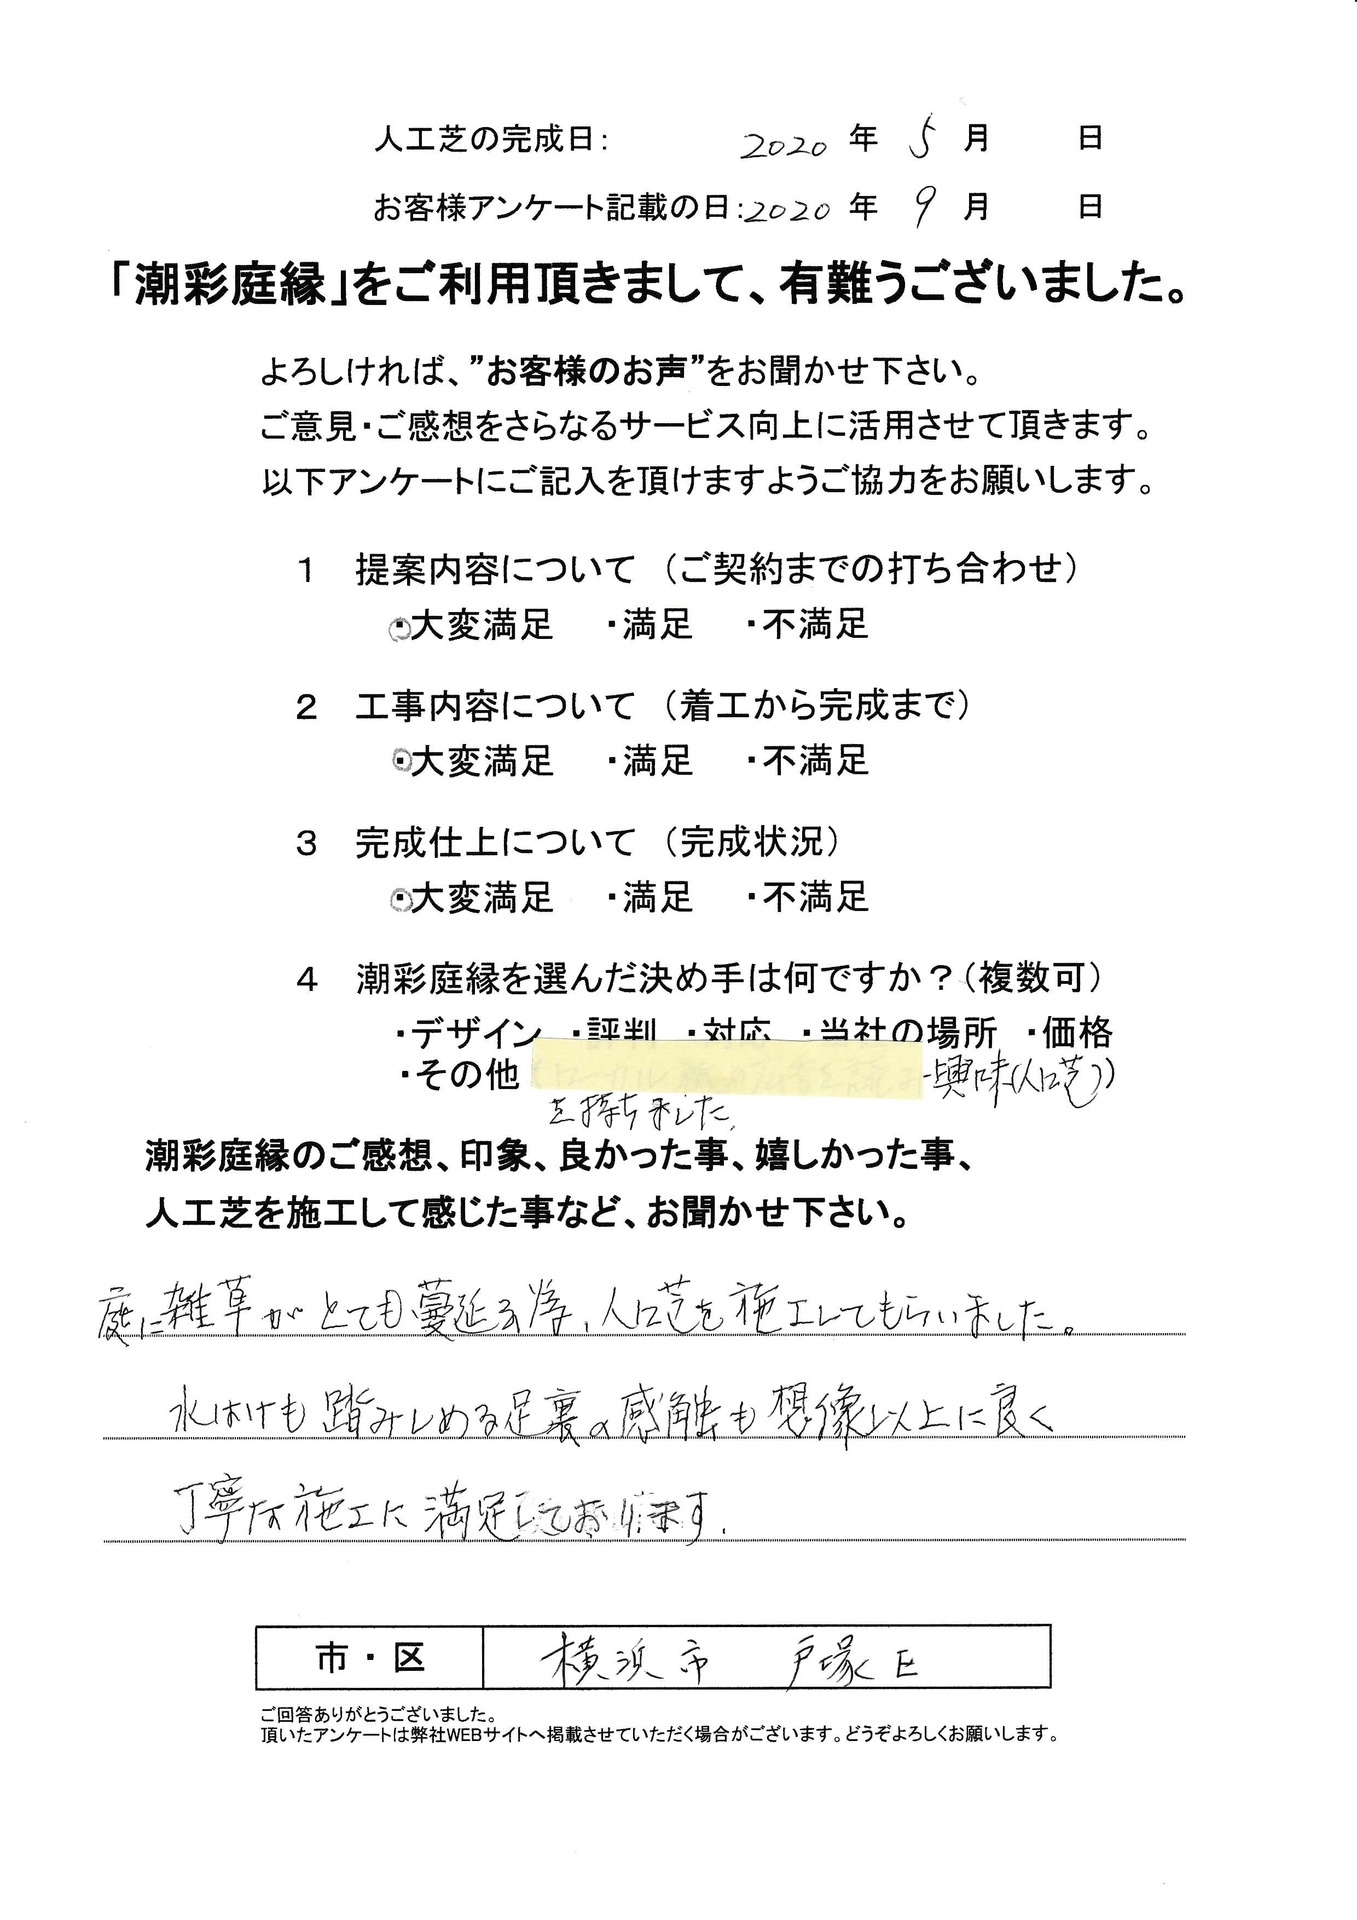 人工芝の完成日: 2020 年 5 月 日
お客様アンケート記載の日:2020 年 9 月 日
「潮彩庭縁」をご利用頂きまして、有難うございました。
よろしければ、”お客様のお声”をお聞かせ下さい。
ご意見・ご感想をさらなるサービス向上に活用させて頂きます。
以下アンケートにご記入を頂けますようご協力をお願いします。
1 提案内容について (ご契約までの打ち合わせ)
・大変満足 ・満足 ・不満足
2 工事内容について (着工から完成まで)
・大変満足 ・満足 ・不満足
3 完成仕上について (完成状況)
・大変満足 ・満足 ・不満足
4 潮彩庭縁を選んだ決め手は何ですか?(複数可)
・デザイン ・評判 ・対応 ・当社の場所 ・価格
・その他 興味(人口芝))
を持ちました。
潮彩庭縁のご感想、印象、良かった事、嬉しかった事、
人工芝を施工して感じた事など、お聞かせ下さい。
庭に雑草がとても蔓延る為、人口芝を施工してもらいました。
水はけも踏みしめる足裏の感触も想像以上に良く
丁寧な施工に満足しております.
市・区 横浜市 戸塚区
ご回答ありがとうございました。
頂いたアンケートは弊社WEBサイトへ掲載させていただく場合がございます。どうぞよろしくお願いします。